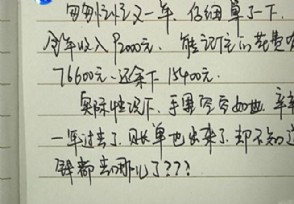 匆匆忙忙又一年，仔细算了一下，
全年收入92000元．能记住的花费有
76600元~还余下15400元．
实际情况下，手里空空如也，辛辛
一年过去了，账单也出来了，却不知道
钱都去哪儿了???